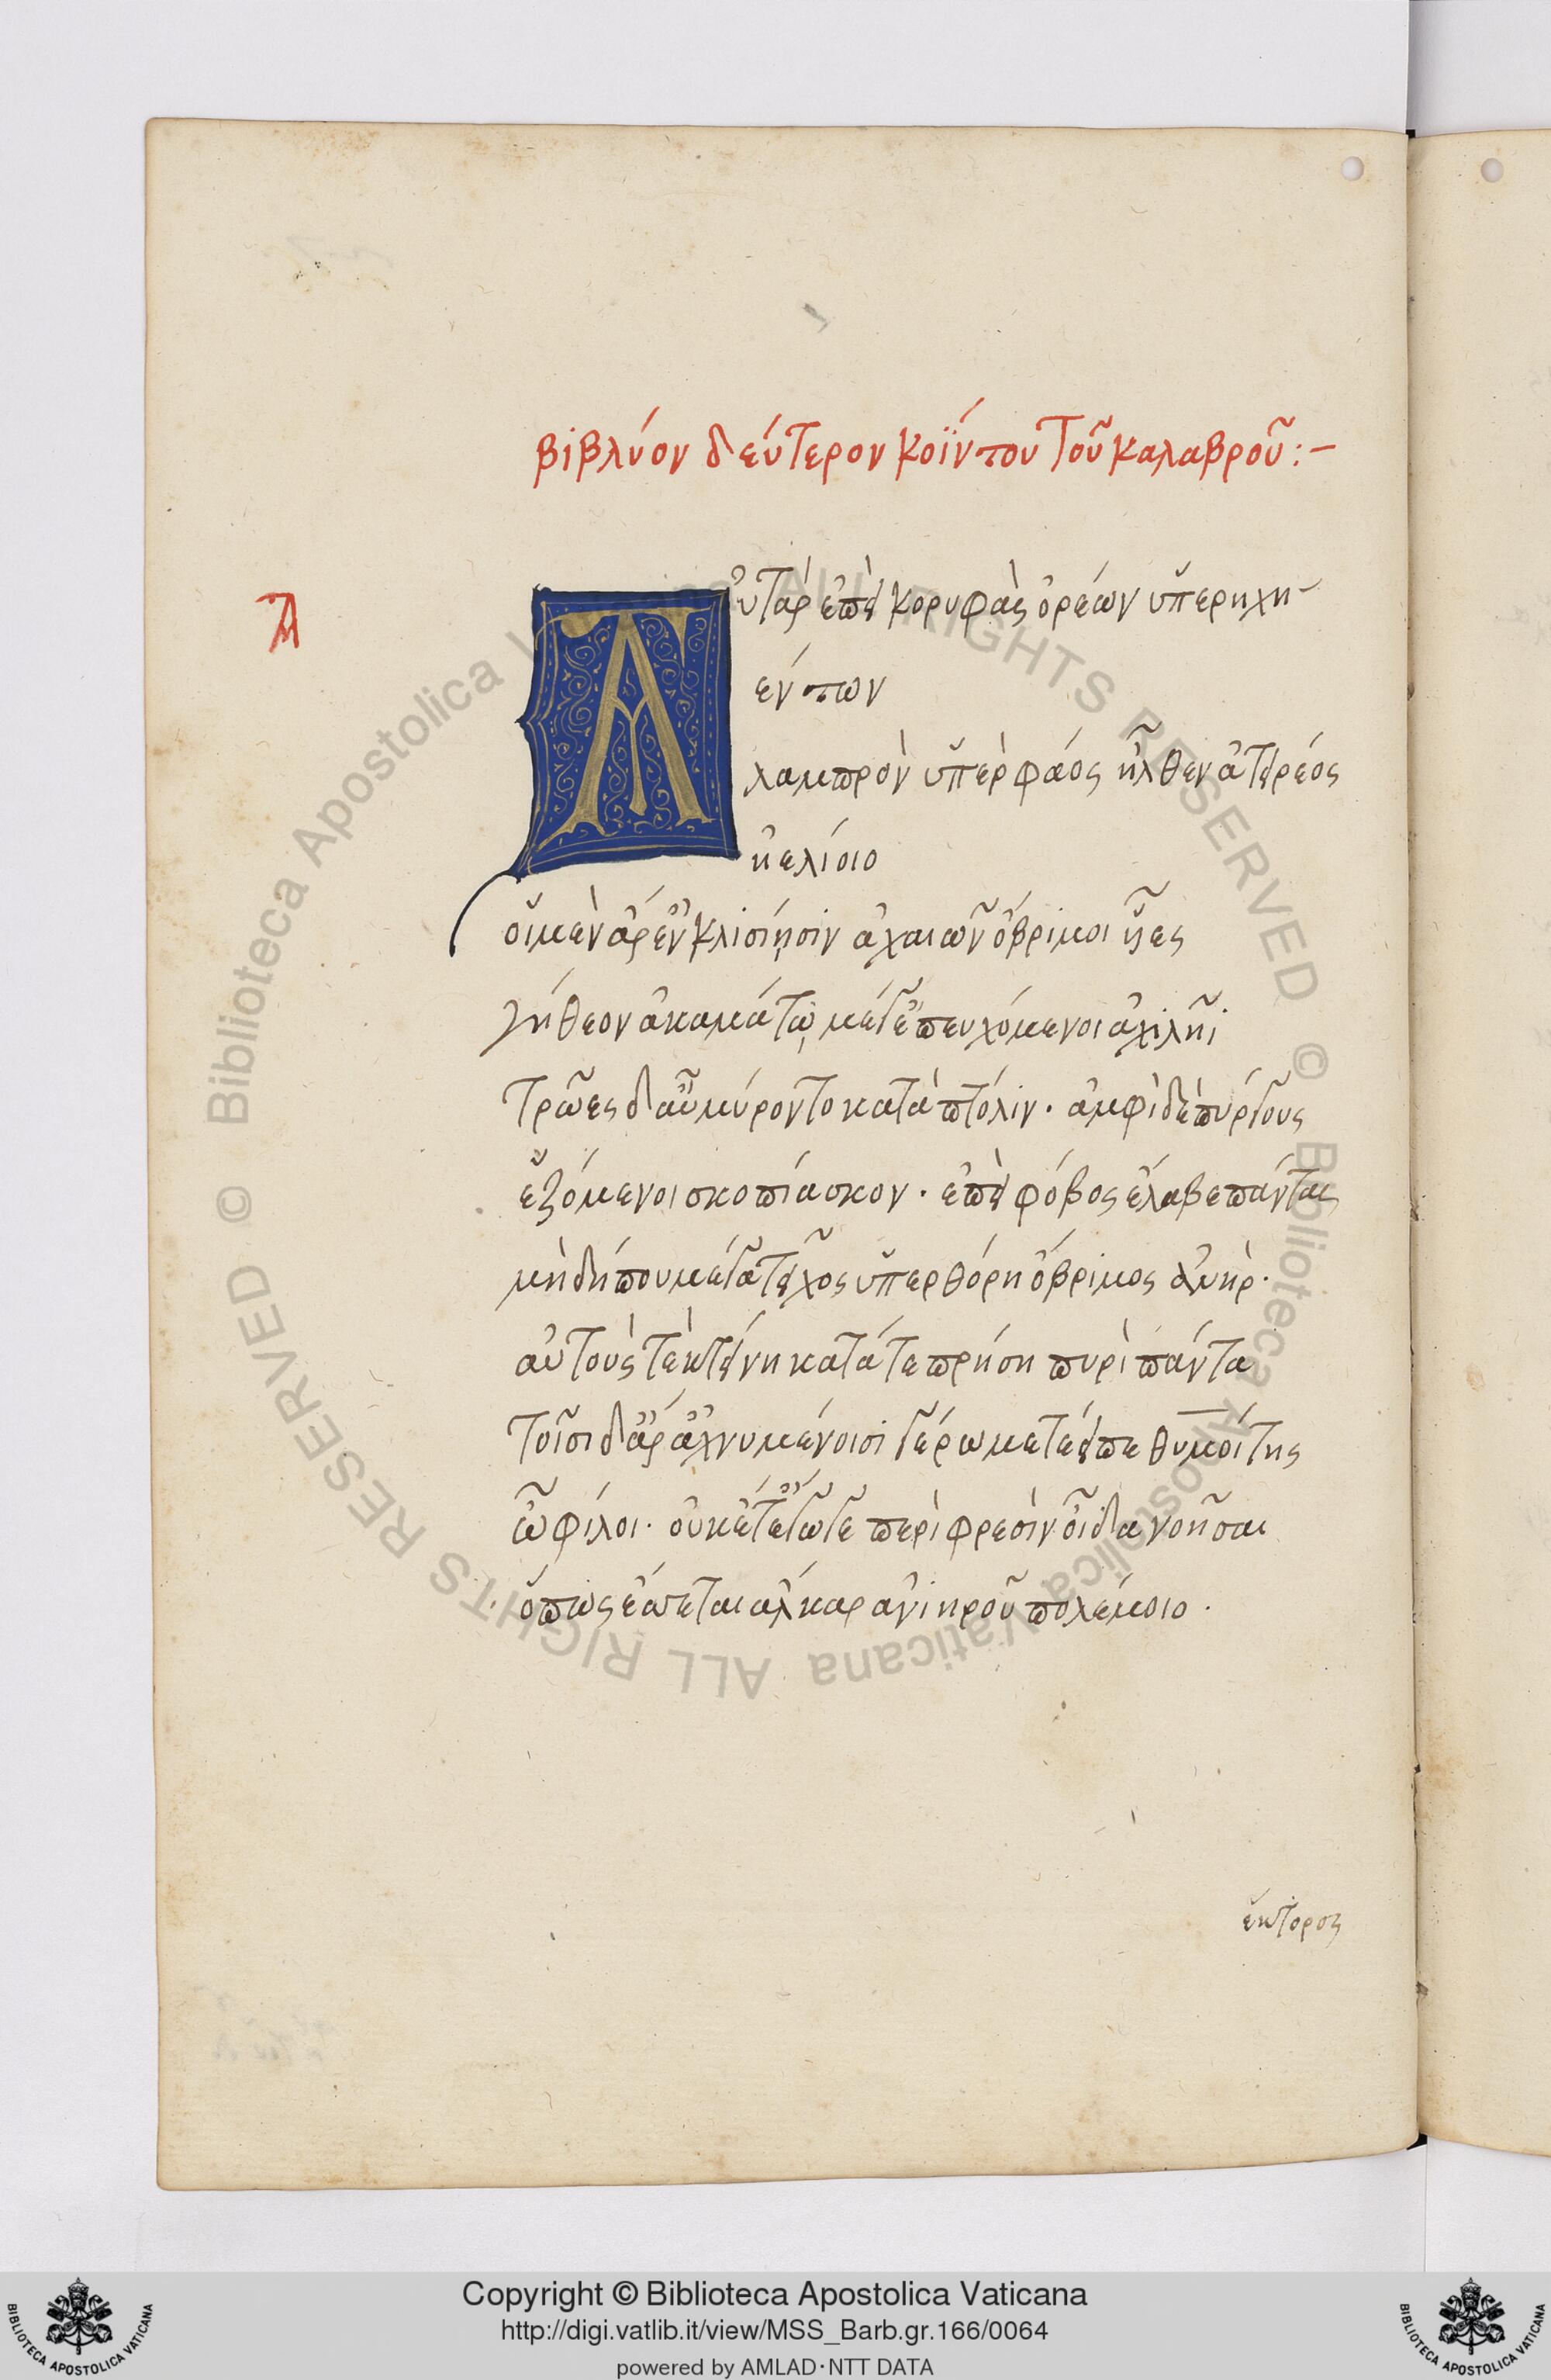 βιβλύον δεύτερον κοΐντου τοῦ καλαβροῦ:-
Ἀ
Αὐτὰρ ἐπεὶ κορυφὰς ὀρέων ὕπερ ἠχη-
έντων
λαμπρὸν ὕπερ φάος ἦλθεν ἀτειρέος
ἠελίοιο
οἵ μὲν ἄρ ἐν κλισίῃσιν ἀχαιῶν ὄβριμοι ἧες
γήθεον ἀκαμάτῳ μέγ ἐπευχόμενοι ἀχιλῆϊ
Τρῶες δ αὖ μύροντο κατὰ πτόλιν. ἀμφὶ δὲ πύργους
ἑζόμενοι σκοπίασκον. ἐπεὶ φόβος ἔλαβε πάντας
μὴ δή που μέγα τεῖχος ὕπερ θόρη ὄβριμος ἀνήρ.
αὐτούς τε κτείνη κατά τε πρήση πυρὶ πάντα
Τοῖσι δ ἄρ ἀχνυμένοισι γέρω μετέειπε θυμοίτης
ὦ φίλοι. οὐκέτ ἔγωγε περὶ φρεσὶν οἶδα νοῆσαι
ὅπως ἔσεται ἄλκαρ ἀνιηροῦ πολέμοιο.
ἕκτορος
Copyright © Biblioteca Apostolica Vaticana
http://digi.vatlib.it/view/MSS_Barb.gr.166/0064
powered by AMLAD·NTT DATA
BIBLIOTECA APOSTOLICA VATICANA
BIBLIOTECA APOSTOLICA VATICANA
© Biblioteca Apostolica Vaticana ALL RIGHTS RESERVED © Biblioteca Apostolica Vaticana ALL RIGHTS RESERVED